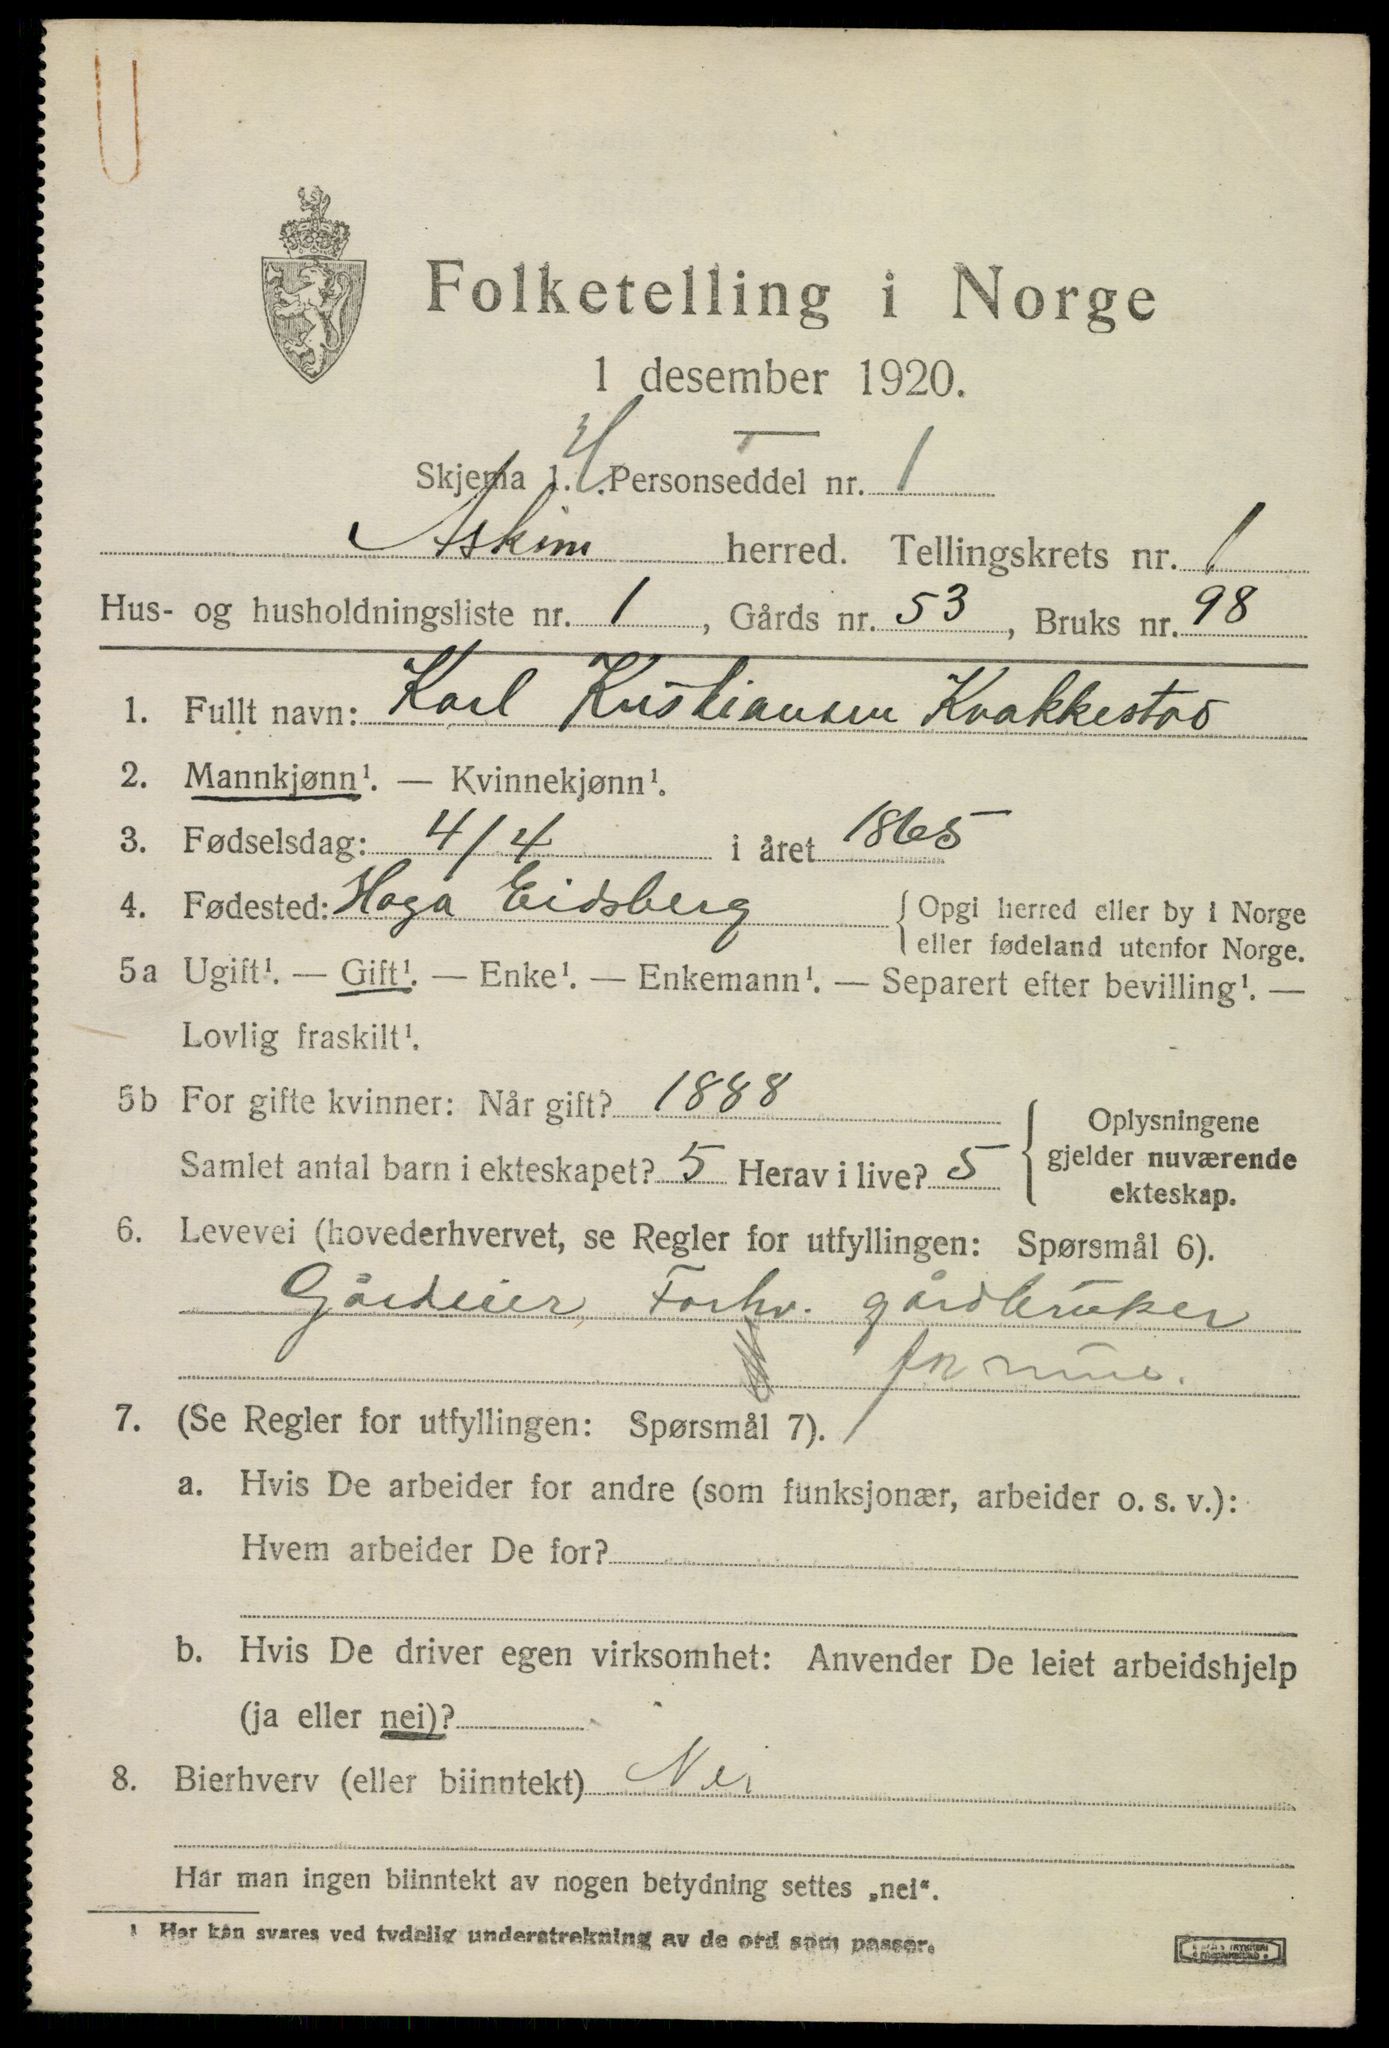 Folketelling i Norge
1 desember 1920.
Skjema 1. Personseddel nr. 1
Askim herred. Tellingskrets nr. 1
Hus- og husholdningsliste nr. 1, Gårds nr. 53, Bruks nr. 98
1. Fullt navn: Karl Kristiansen Kvakkestad
2. Mannkjønn¹. — Kvinnekjønn¹.
3. Fødselsdag: 4/4 i året 1865
4. Fødested: Haga Eidsberg { Opgi herred eller by i Norge
eller fødeland utenfor Norge.
5a Ugift¹. — Gift¹. — Enke¹. — Enkemann¹. — Separert efter bevilling¹. —
Lovlig fraskilt¹.
5b For gifte kvinner: Når gift? 1888
Samlet antal barn i ekteskapet? 5 Herav i live? 5
{ Oplysningene
gjelder nuværende
ekteskap.
6. Levevei (hovederhvervet, se Regler for utfyllingen: Spørsmål 6).
Gårdeier, Forhv. gårdbruker
7. (Se Regler for utfyllingen: Spørsmål 7).
a. Hvis De arbeider for andre (som funksjonær, arbeider o. s. v.):
Hvem arbeider De for?
b. Hvis De driver egen virksomhet: Anvender De leiet arbeidshjelp
(ja eller nei)?
8. Bierhverv (eller biinntekt) Nei
Har man ingen biinntekt av nogen betydning settes „nei“.
¹ Her kan svares ved tydelig understrekning av de ord som passer.